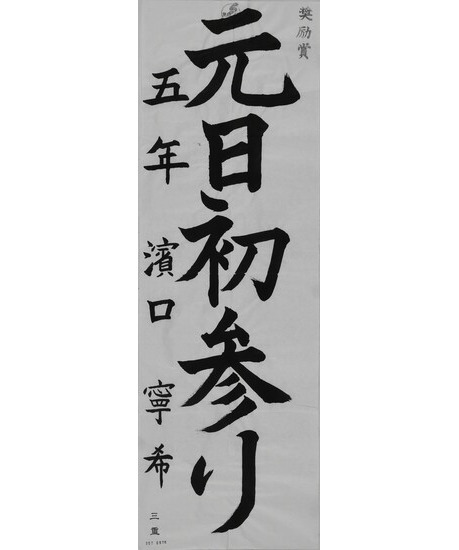 奨励賞
元日初参り
五年 濱口 寧希
三重